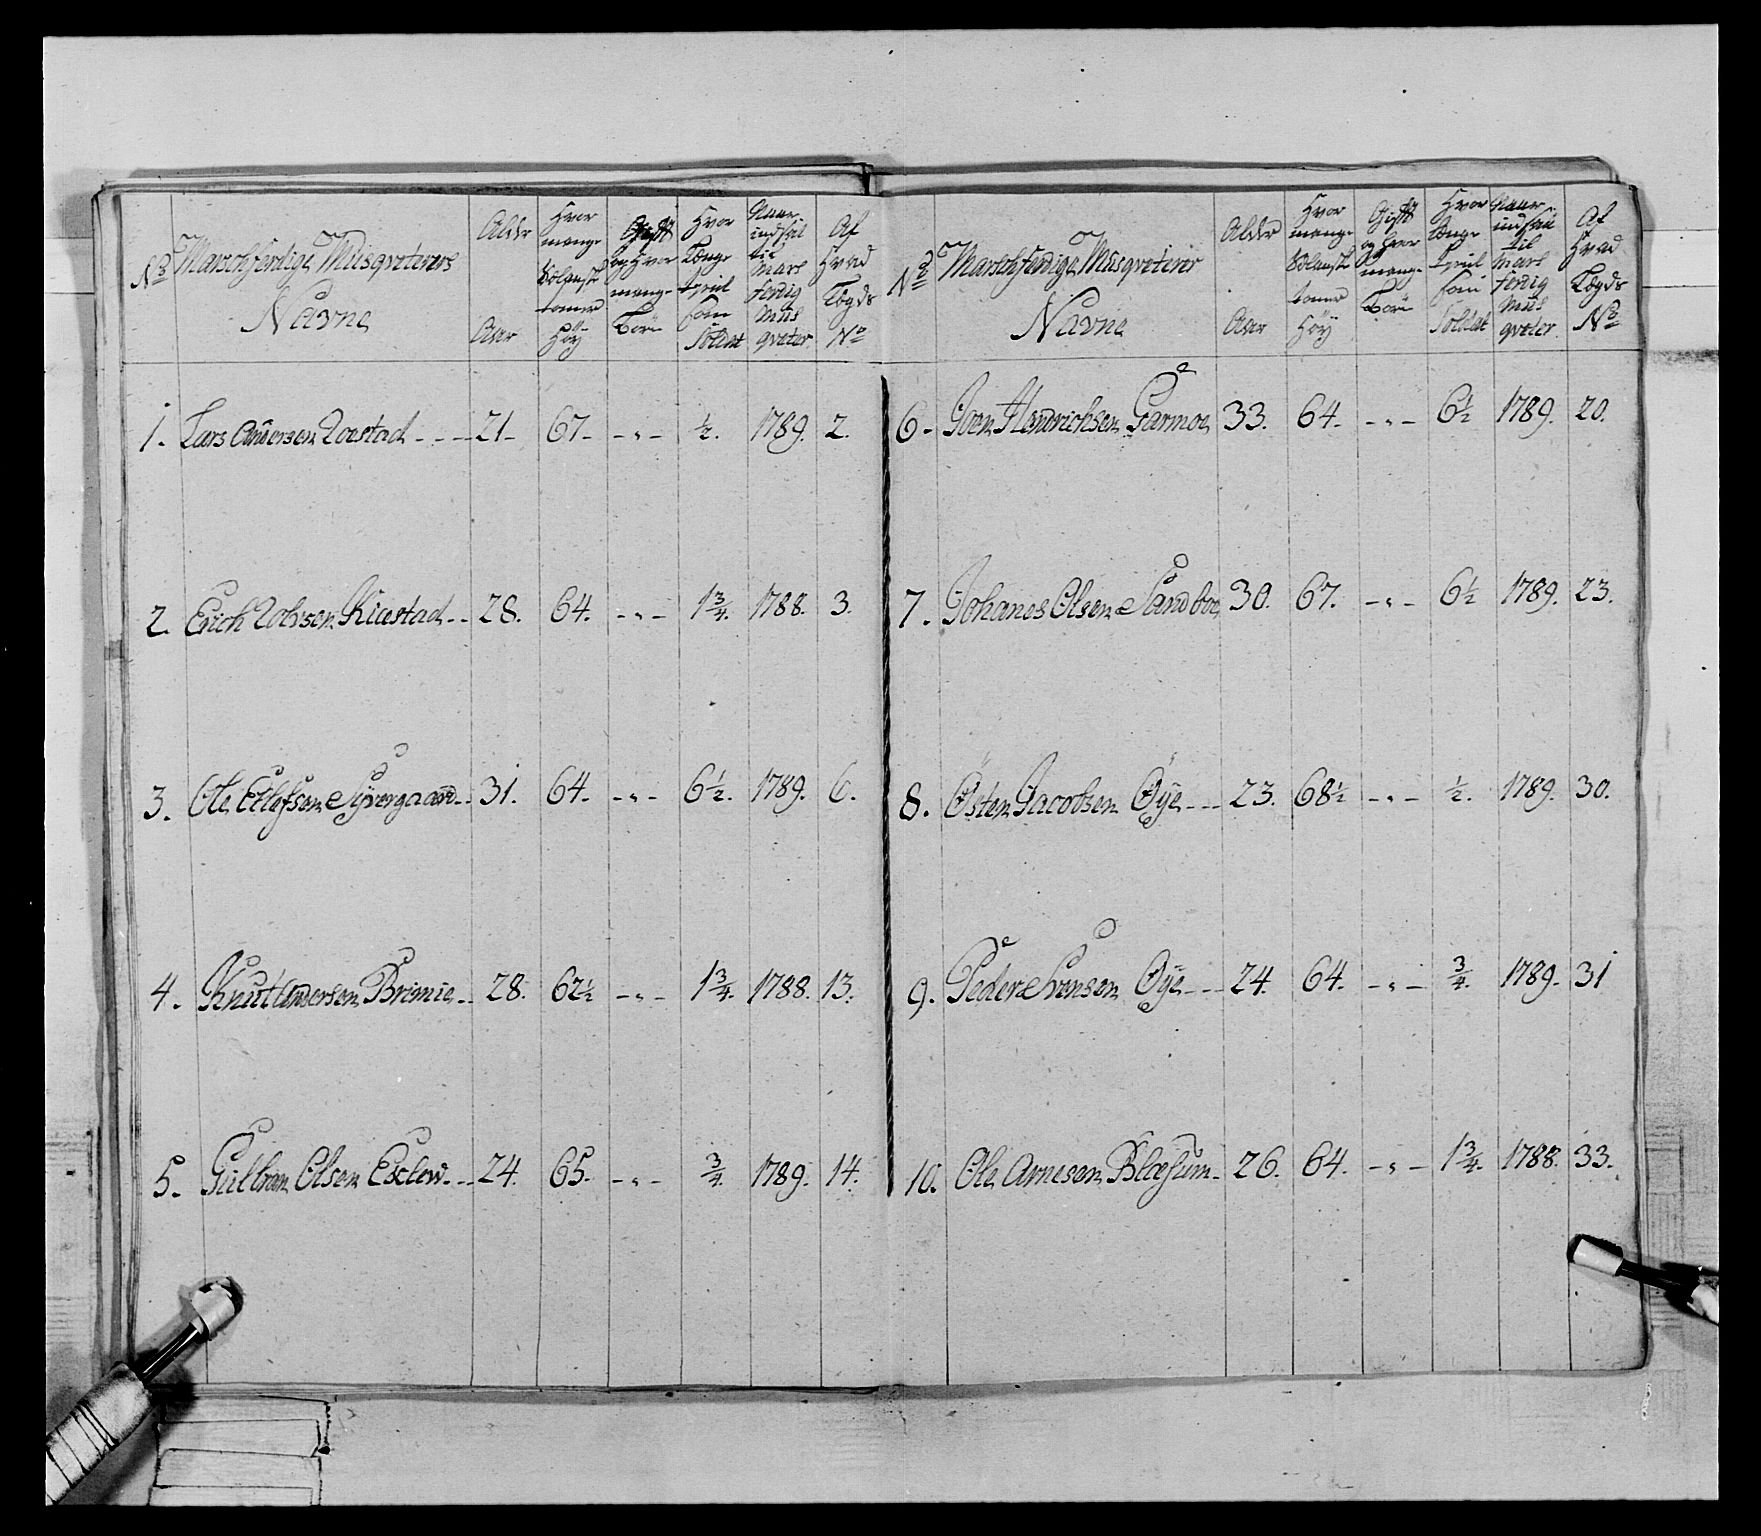 No Marschferdige Musqveterers Navne
Alder Aar
Hvor mange tomer Höy
Gift og Hvor mange Börn
Hvor Længe tient som Soldat
Naar indfal til Mars ferdig Musqveter
Af Hvad Lægds No
1. Lars Andersen 21 - 67 - - " - ½. 1789. 2.
2. Erich 28. 64. - " - 1¾. 1788. 3.
3. Ole 31. 64. - " - 6½. 1789. 6.
4. Knut Andersen Brimie 28. 62½ - " - 1¾. 1788. 13.
5. Gulbran Olsen 24. 65. - " - ¾. 1789. 14.
No Marschferdige Musqveterer Navne
Alder Aar
Hvor mange tomer Höy
Gift og Hvor mange Börn
Hvor Længe tient som Soldat
Naar indfal til Mars ferdig Musqveter
Af Hvad Lægds No
6. Iver Hendrichsen Garmoe 33. 64. - " - 6½ 1789. 20.
7. Johanes Olsen Sandboe 30. 67. - " - 6½ 1789. 23.
8. Östen Jacobsen Öye 23. 68½ - " - ½. 1789. 30.
9. Peder Svensen Öye 24. 64. - " - ¾. 1789. 31
10. Ole Arnesen Blæssum 26. 64. - " - 1¾. 1788. 33.